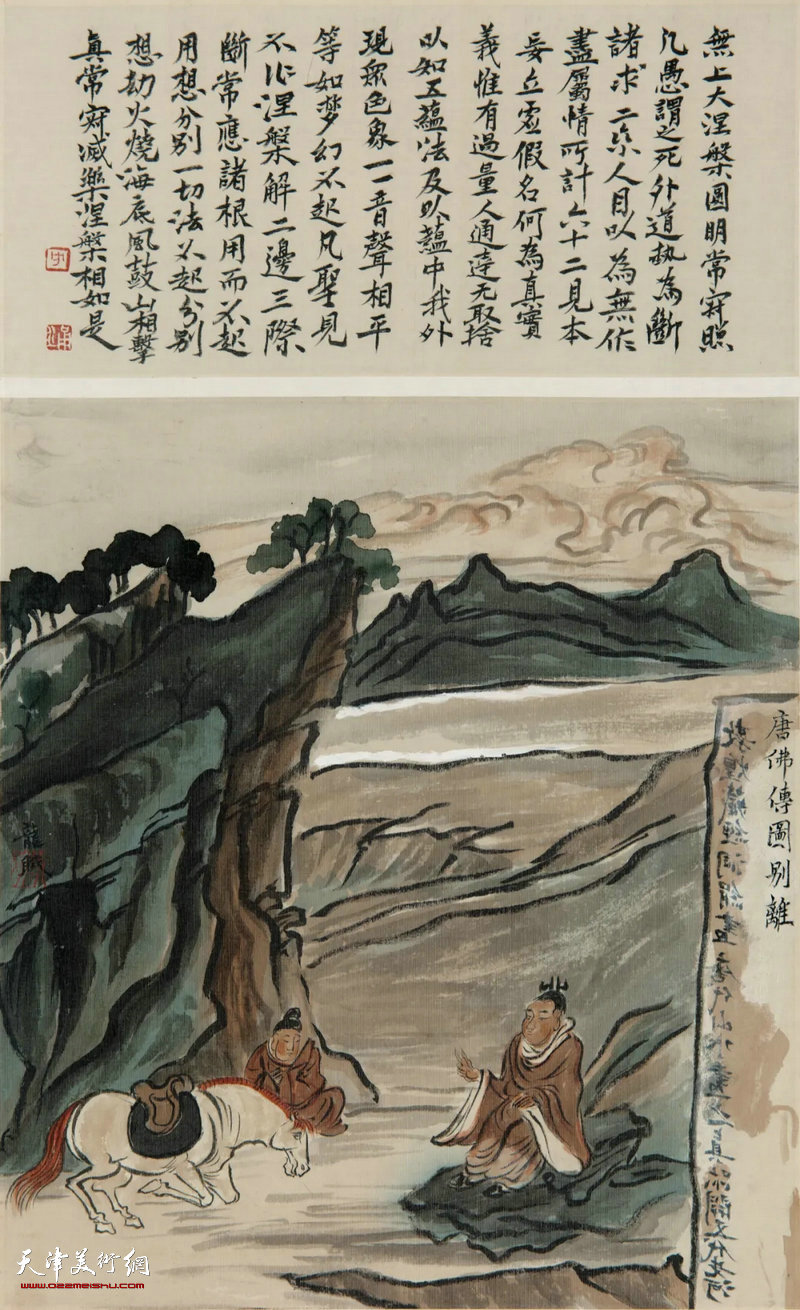 無上大涅槃圓明常寂照
凡愚謂之死外道執為斷
諸求二乘人目以為無作
盡屬情所計六十二見本
妄立虛假名何為真實
義惟有過量人通達无取捨
以知五蘊法及以蘊中我外
現衆色象一一音聲相平
等如梦幻不起凡聖見
不作涅槃解二邊三際
斷常應諸根用而不起
用想分別一切法不起分別
想劫火燒海底風鼓山相擊
真常寂滅樂涅槃相如是
唐佛傳圖別離
敦煌藏經洞絹畫唐代山水畫之真
天津美術網
www.022meishu.com